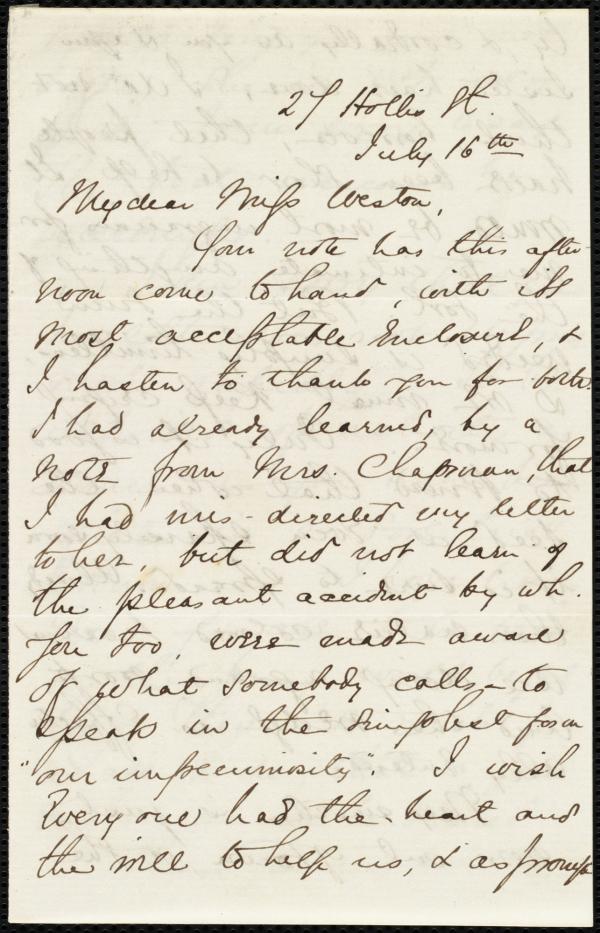 27 Hollis St.
July 16th
My dear Miss Weston,
Your note has this after-
noon come to hand, with its
most acceptable enclosure, &
I hasten to thank you for both.
I had already learned, by a
note from Mrs. Chapman, that
I had mis-directed my letter
to her, but did not learn of
the pleasant accident by wh.
you too, were made aware
of what somebody calls - to
speak in the simplest form
"our impecuniosity". I wish
every one had the heart and
the will to help us, & as prompt